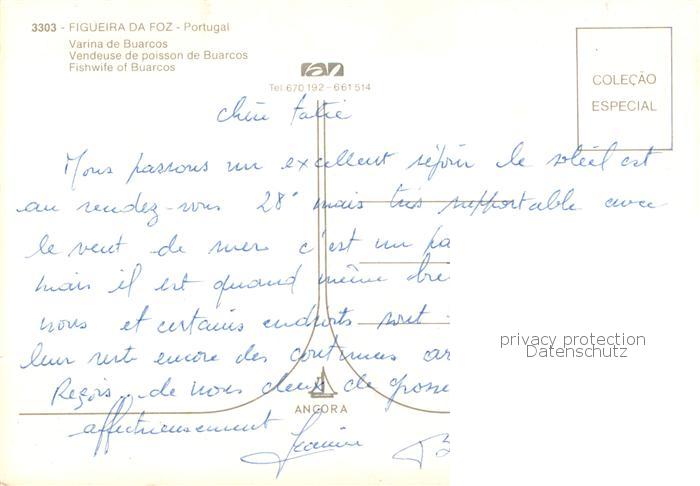 3303 - FIGUEIRA DA FOZ - Portugal
Varina de Buarcos
Vendeuse de poisson de Buarcos
Fishwife of Buarcos
Tel. 670 192 - 661 514
COLEÇÃO
ESPECIAL
chère tatie
Nous passons un excellent séjour le soleil est
au rendez-vous 28° mais très supportable avec
le vent de mer c'est un pa
mais il est quand même
nous et certains endroits sont
leur reste encore des coutumes
Reçois de nous deux de grosse
affectueusement Jeanine
ANCORA
privacy protection
Datenschutz